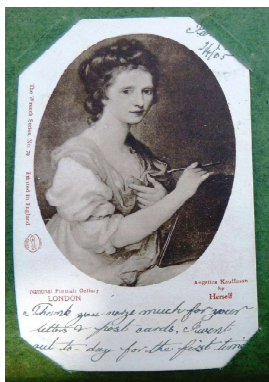 14/05
The Wrench Series, No. 79
Printed in England
National Portrait Gallery
LONDON
Angelica Kauffmann
by
Herself
Thank you very much for your
letters & post cards. I went
out to-day for the first time